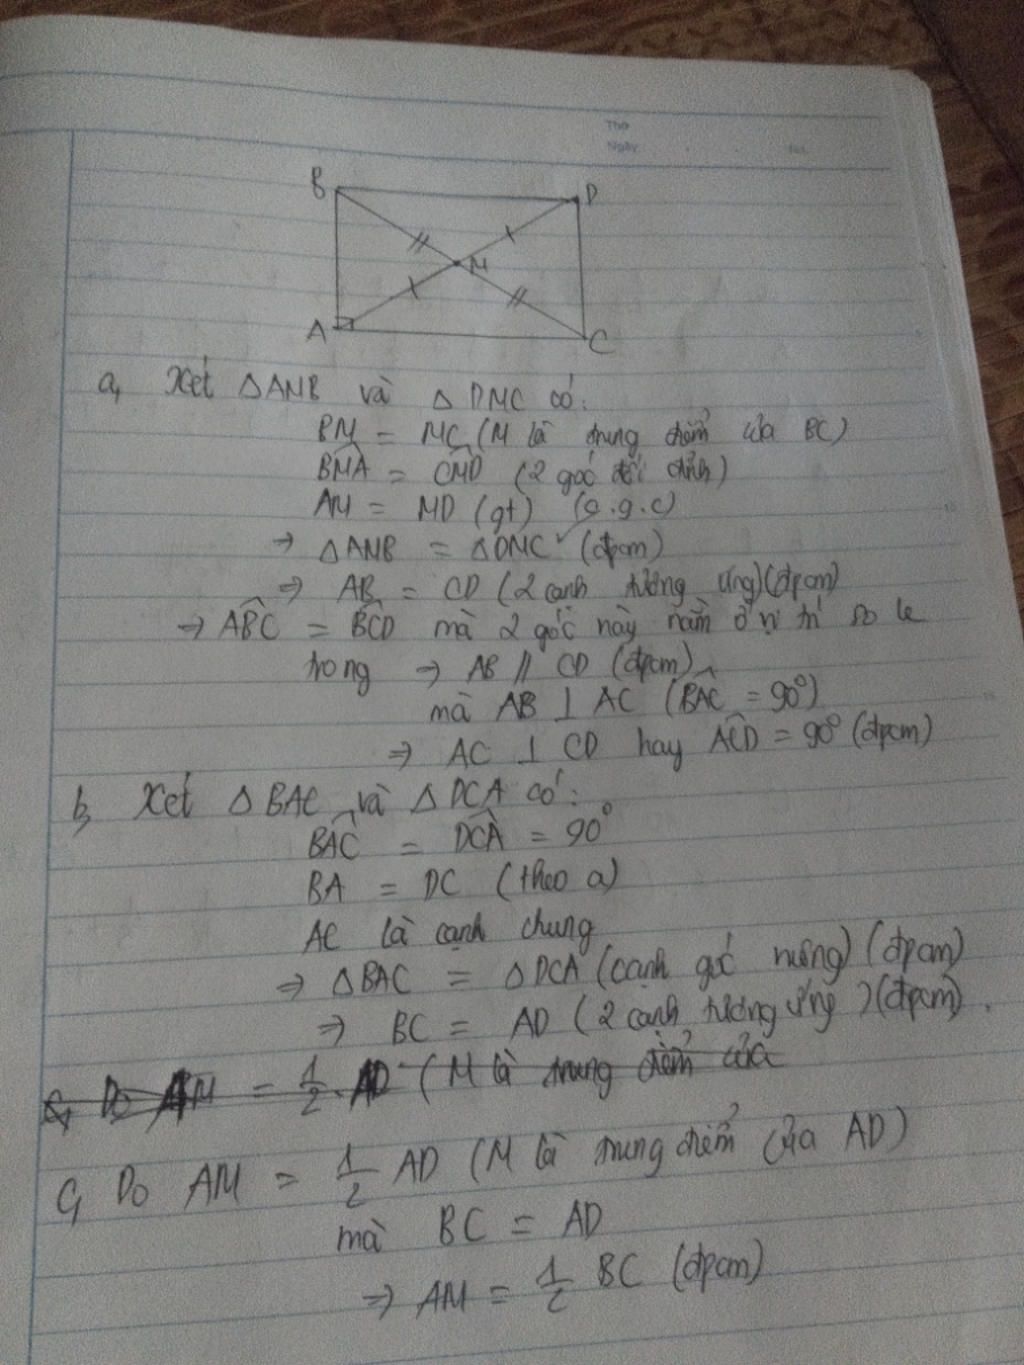 Thứ
Ngày
B
D
M
A
C
a, Xét △AMB và △DMC có:
BM = MC (M là trung điểm của BC)
BMA = CMD (2 góc đối đỉnh)
AM = MD (gt) (c.g.c)
→ △AMB = △DMC (đpcm)
⇒ AB = CD (2 cạnh tương ứng)(đpcm)
→ ABC = BCD mà 2 góc này nằm ở vị trí so le
trong → AB // CD (đpcm)
mà AB ⊥ AC (BAC = 90⁰)
⇒ AC ⊥ CD hay ACD = 90⁰ (đpcm)
b, Xét △BAC và △DCA có:
BAC = DCA = 90⁰
BA = DC (theo a)
AC là cạnh chung
⇒ △BAC = △DCA (cạnh góc vuông) (đpcm)
⇒ BC = AD (2 cạnh tương ứng)(đpcm).
c, Do AM = 1/2 AD (M là trung điểm của
c, Do AM = 1/2 AD (M là trung điểm của AD)
mà BC = AD
⇒ AM = 1/2 BC (đpcm)